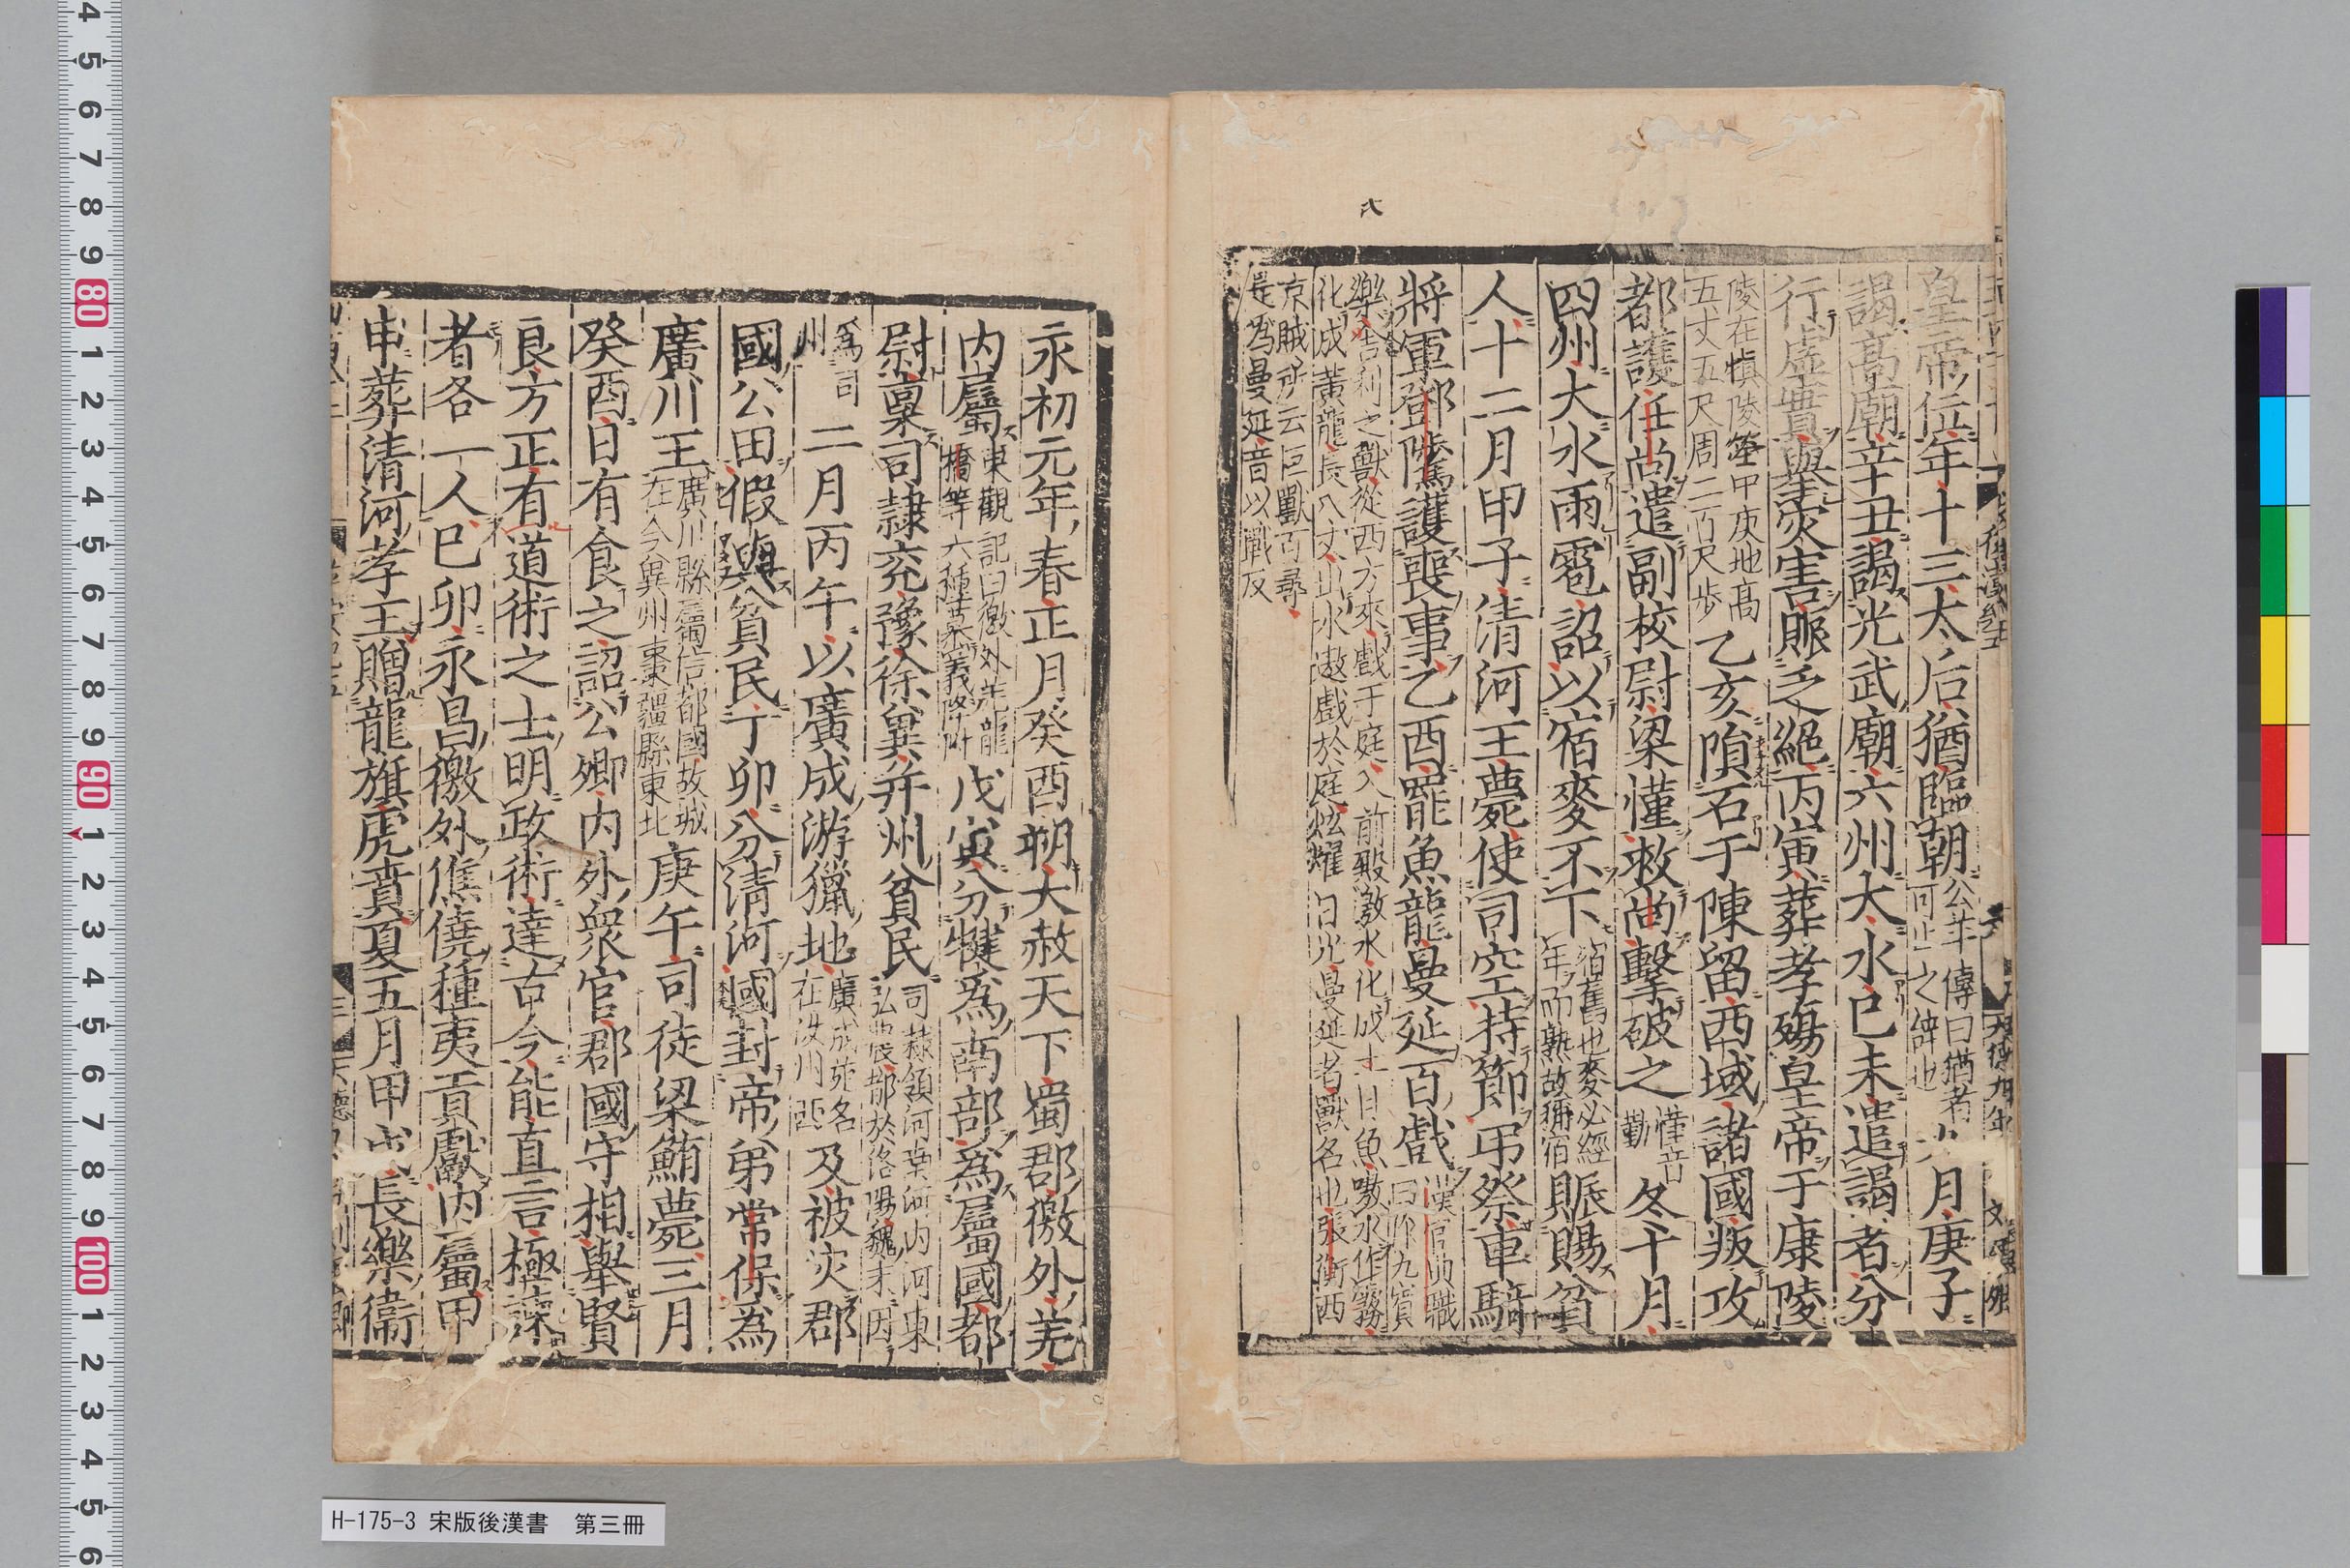 皇帝位年十三太后猶臨朝公羊傳曰猶者可止之辭也 月庚子
謁高廟辛丑謁光武廟六州大水巳未遣謁者分
行虛實舉災害賑乏絕丙寅葬孝殤皇帝于康陵
陵在慎陵塋中庚地高五丈五尺周二百八步乙亥隕石于陳留西域諸國叛攻
都護任尚遣副校尉梁慬救尚擊破之慬音勤冬十月
四州大水雨雹詔以宿麥不下宿舊也麥必經年而熟故稱宿賑賜貧
人十二月甲子清河王薨使司空持節弔祭車騎
將軍鄧騭護喪事乙酉罷魚龍曼延百戲漢官典職曰作九賓
樂舍利之獸從西方來戲于庭入前殿激水化成比目魚嗽水作霧
化成黃龍長八丈出水遨戲於庭炫燿日光曼延者獸名也張衡西
京賦所云巨獸百尋
是為曼延音以戰反
永初元年春正月癸酉朔大赦天下蜀郡徼外羌
內屬東觀記曰徼外羌龍橋等六種慕義降附戊寅分犍為南部為屬國都
尉稟司隸兗豫徐冀并州貧民司隸領河南河內河東弘農郡於洛陽魏末因
為司州二月丙午以廣成游獵地廣成苑名在汝州西及被災郡
國公田假與貧民丁卯分清河國封帝弟常保為
廣川王廣川縣屬信都國故城在今冀州棗彊縣東北庚午司徒梁鮪薨三月
癸酉日有食之詔公卿內外衆官郡國守相舉賢
良方正有道術之士明政術達古今能直言極諫
者各一人巳卯永昌徼外僬僥種夷貢獻內屬甲
申葬清河孝王贈龍旗虎賁夏五月甲戌長樂衛
H-175-3 宋版後漢書 第三冊